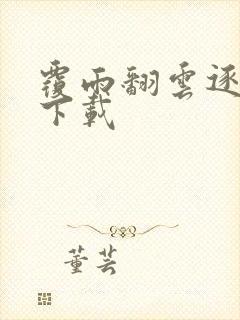 覆雨翻雲逐
下載
董芸